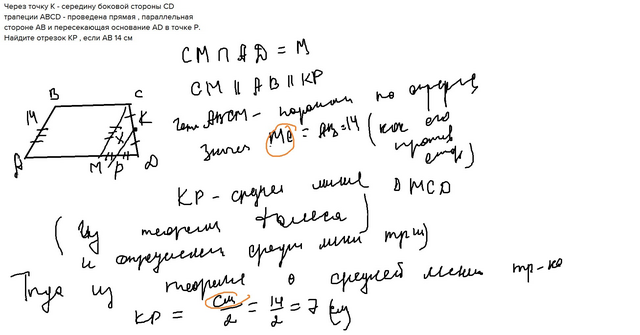 Через точку K - середину боковой стороны CD
трапеции ABCD - проведена прямая , параллельная
стороне AB и пересекающая основание AD в точке P.
Найдите отрезок KP , если AB 14 см
CM ∩ AD = M
CM ∥ AB ∥ KP
ABCM - по
Значит MC = AB = 14 (как его
против
стор)
B C
14 K
x
A M P D
KP - средняя линия Δ MCD
(Из теоремы Фалеса
и определения средн линии тр)
Тогда из теоремы о средней линии тр-ка
KP = CM/2 = 14/2 = 7 (см)